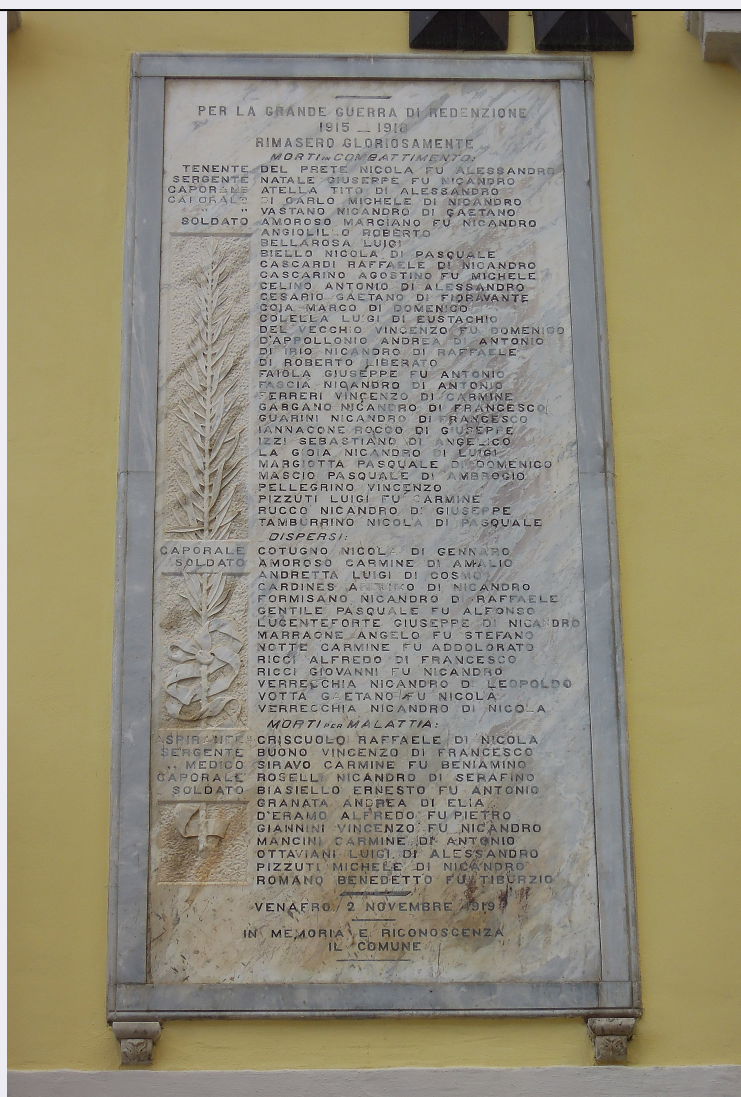 PER LA GRANDE GUERRA DI REDENZIONE
1915 — 1918
RIMASERO GLORIOSAMENTE
MORTI IN COMBATTIMENTO:
TENENTE DEL PRETE NICOLA FU ALESSANDRO
SERGENTE NATALE GIUSEPPE FU NICANDRO
CAPORALE ATELLA TITO DI ALESSANDRO
CAPORALE DI CARLO MICHELE DI NICANDRO
" " VASTANO NICANDRO DI GAETANO
SOLDATO AMOROSO MARCIANO FU NICANDRO
ANGIOLILLO ROBERTO
BELLAROSA LUIGI
BIELLO NICOLA DI PASQUALE
CASCARDI RAFFAELE DI NICANDRO
CASCARINO AGOSTINO FU MICHELE
CELINO ANTONIO DI ALESSANDRO
CESARIO GAETANO DI FIORAVANTE
COJA MARCO DI DOMENICO
COLELLA LUIGI DI EUSTACHIO
DEL VECCHIO VINCENZO FU DOMENICO
D'APPOLLONIO ANDREA DI ANTONIO
DI IRIO NICANDRO DI RAFFAELE
DI ROBERTO LIBERATO
FAIOLA GIUSEPPE FU ANTONIO
FASCIA NICANDRO DI ANTONIO
FERRERI VINCENZO DI CARMINE
GARGANO NICANDRO DI FRANCESCO
GUARINI NICANDRO DI FRANCESCO
IANNACONE ROCCO DI GIUSEPPE
IZZI SEBASTIANO DI ANGELICO
LA GIOIA NICANDRO DI LUIGI
MARGIOTTA PASQUALE DI DOMENICO
MASCIO PASQUALE DI AMBROGIO
PELLEGRINO VINCENZO
PIZZUTI LUIGI FU CARMINE
RUCCO NICANDRO DI GIUSEPPE
TAMBURRINO NICOLA DI PASQUALE
DISPERSI:
CAPORALE COTUGNO NICOLA DI GENNARO
SOLDATO AMOROSO CARMINE DI AMALIO
ANDRETTA LUIGI DI COSMO
CARDINES DI NICANDRO
FORMISANO NICANDRO DI RAFFAELE
GENTILE PASQUALE FU ALFONSO
LUCENTEFORTE GIUSEPPE DI NICANDRO
MARRAONE ANGELO FU STEFANO
NOTTE CARMINE FU ADDOLORATO
RICCI ALFREDO DI FRANCESCO
RICCI GIOVANNI FU NICANDRO
VERRECCHIA NICANDRO DI LEOPOLDO
VOTTA GAETANO FU NICOLA
VERRECCHIA NICANDRO DI NICOLA
MORTI PER MALATTIA:
ASPIRANTE CRISCUOLO RAFFAELE DI NICOLA
SERGENTE BUONO VINCENZO DI FRANCESCO
,, MEDICO SIRAVO CARMINE FU BENIAMINO
CAPORALE ROSELLI NICANDRO DI SERAFINO
SOLDATO BIASIELLO ERNESTO FU ANTONIO
GRANATA ANDREA DI ELIA
D'ERAMO ALFREDO FU PIETRO
GIANNINI VINCENZO FU NICANDRO
MANCINI CARMINE DI ANTONIO
OTTAVIANI LUIGI DI ALESSANDRO
PIZZUTI MICHELE DI NICANDRO
ROMANO BENEDETTO FU TIBURZIO
VENAFRO, 2 NOVEMBRE 1919
IN MEMORIA E RICONOSCENZA
IL COMUNE